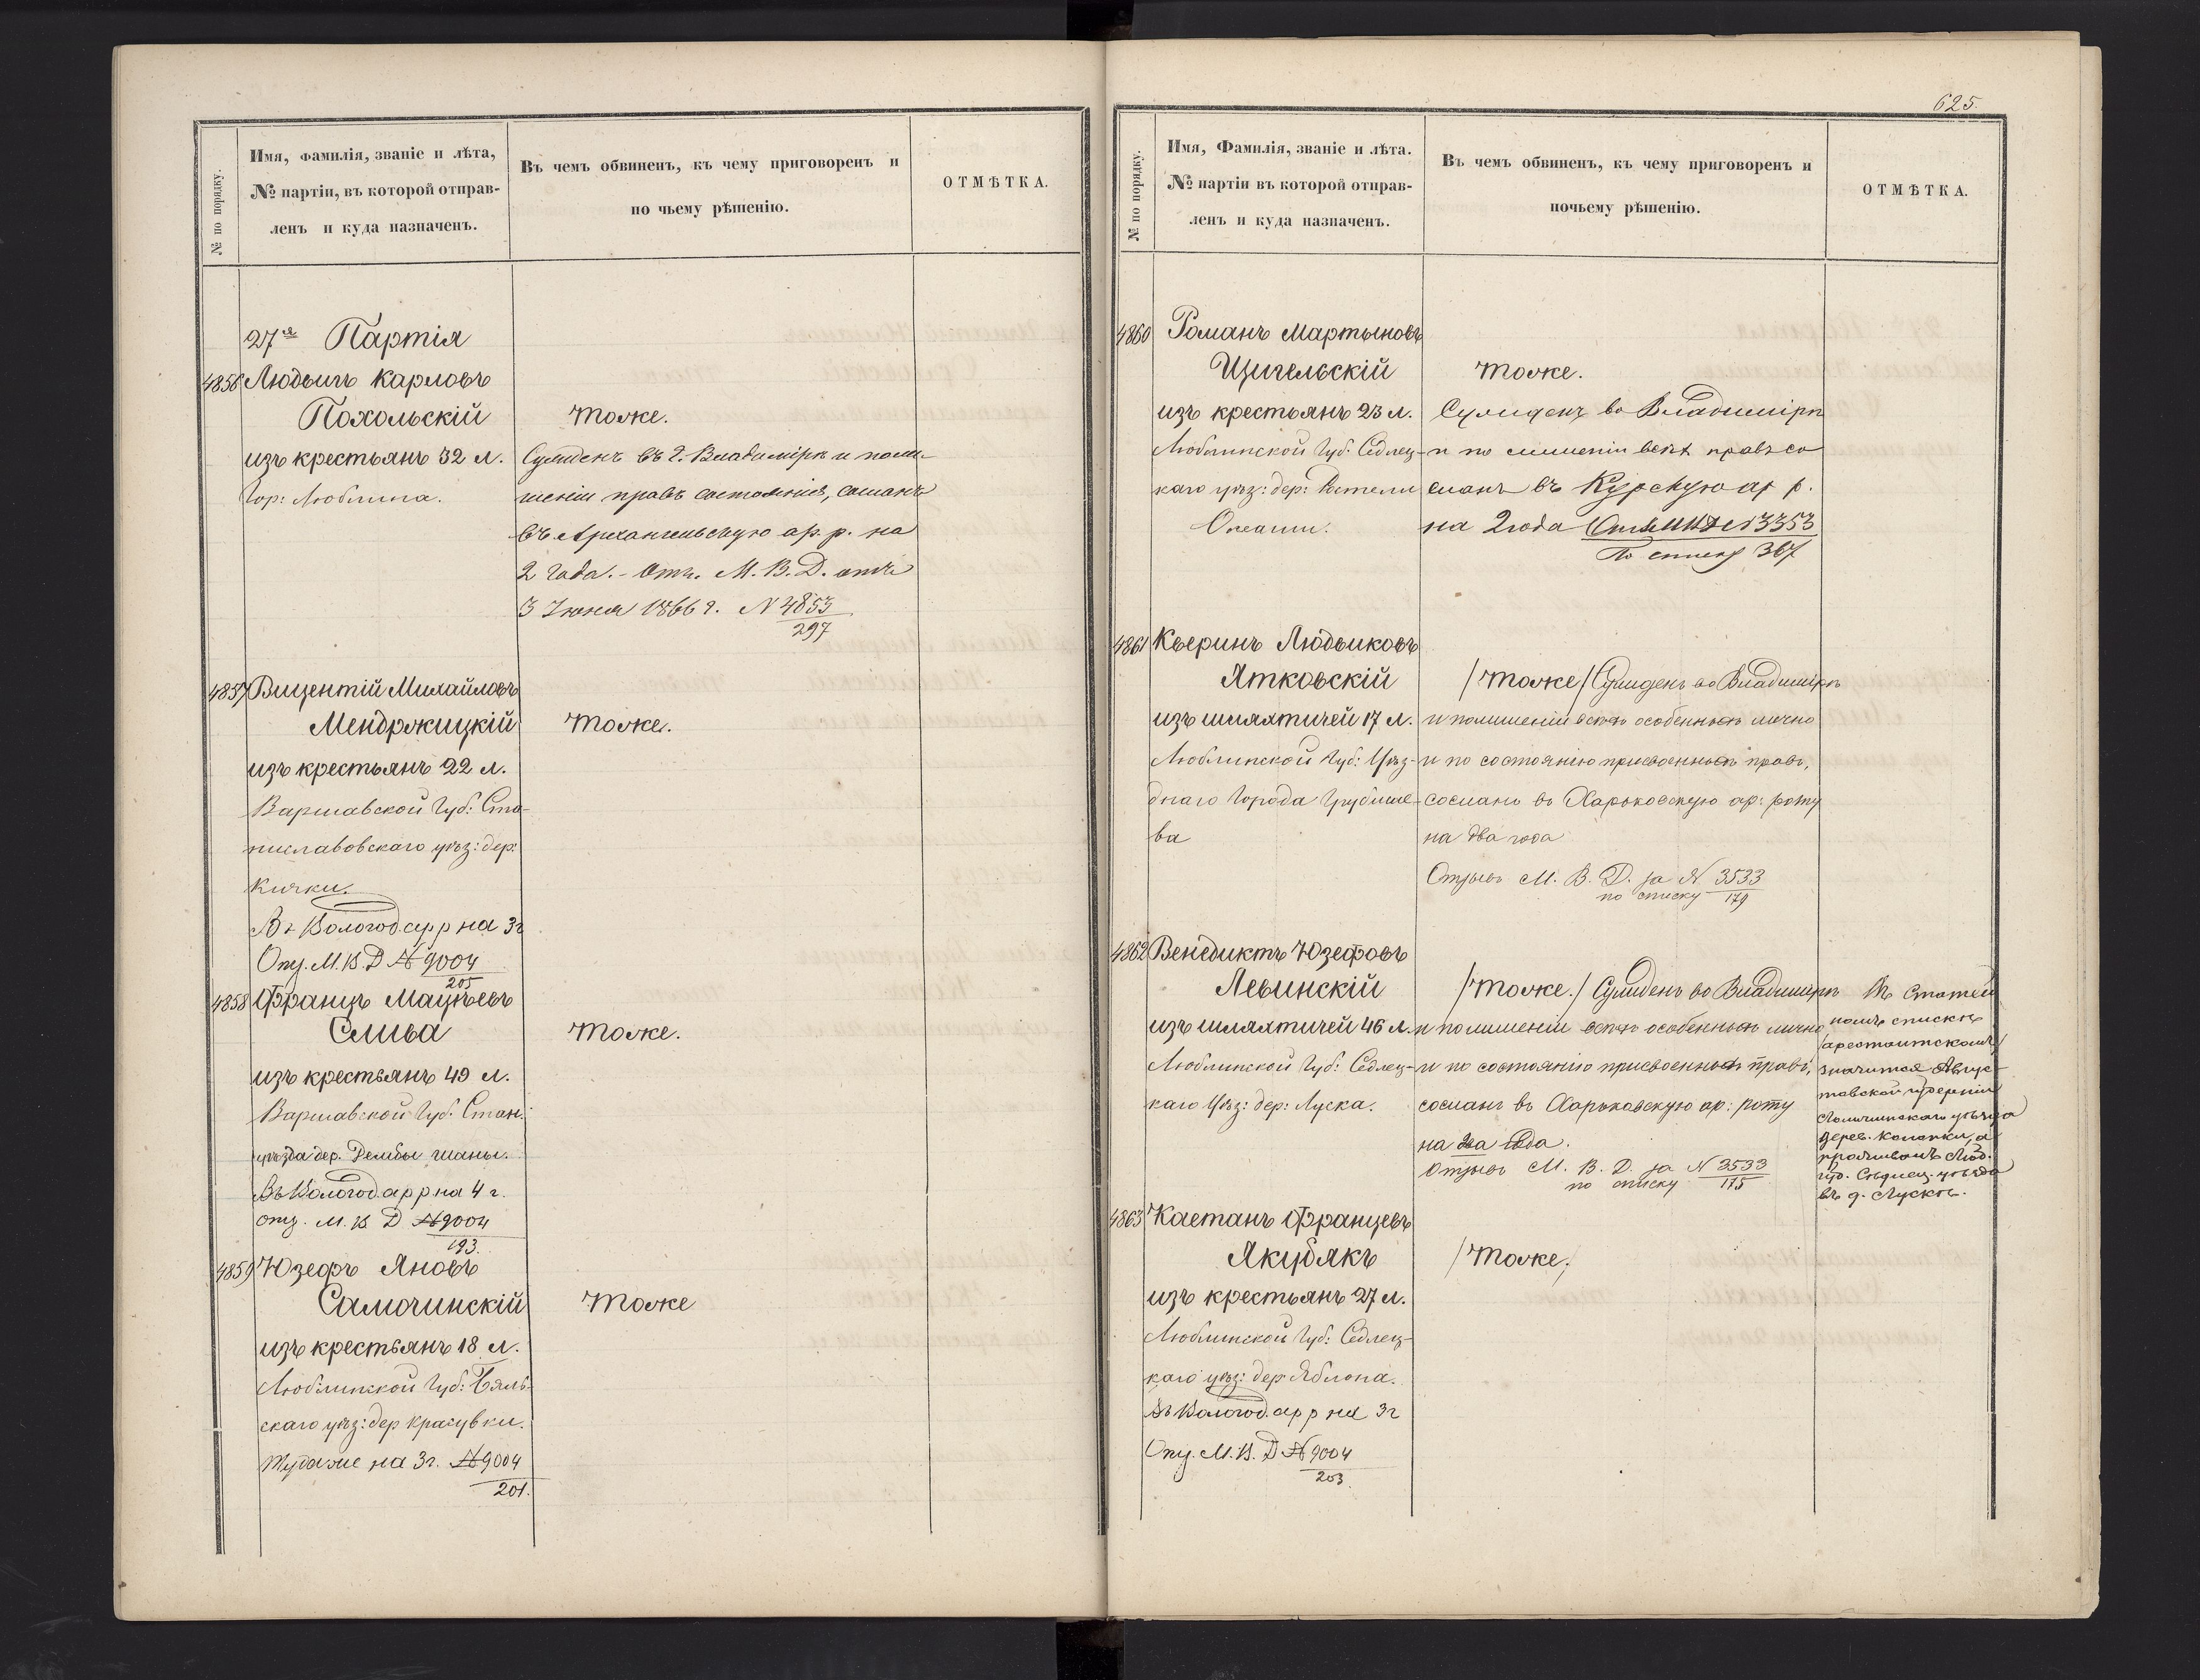 № по порядку.
Имя, Фамилія, званіе и лѣта,
№ партіи, въ которой отправ-
ленъ и куда назначенъ.
Въ чемъ обвиненъ, къ чему приговоренъ и
по чьему рѣшенію.
ОТМѢТКА.
27я Партія
4856 Людвигъ Карловъ
Похольскій
изъ крестьянъ 32 л.
Гор: Люблина.
тоже.
Сужденъ въ г. Владимірѣ и по ли-
шеніи правъ состоянія, сосланъ
въ Архангельскую ар. р. на
2 года. - Отн. М. В. Д. отъ
3 Іюня 1866 г. N 4853
297
4857 Вицентій Михайловъ
Мендржицкій
изъ крестьянъ 22 л.
Варшавской Губ: Ста-
ниславовскаго уѣз: дер:
Кички.
Въ Вологод ар р на 3 г
М. В. Д № 9004
205
тоже.
4858 Францъ Мацѣевъ
Слива
изъ крестьянъ 49 л.
Варшавской Губ: Стан:
уѣзда дер.
Въ Вологод. ар р на 4 г.
М. В Д № 9004
193.
тоже.
4859 Юзефъ Яновъ
Самочинскій
изъ крестьянъ 18 л.
Люблинской Губ: Бяль-
скаго уѣз: дер Красувки.
Туда же на 3 г. № 9004
201.
тоже
625.
№ по порядку.
Имя, Фамилія, званіе и лѣта.
№ партіи въ которой отправ-
ленъ и куда назначенъ.
Въ чемъ обвиненъ, къ чему приговоренъ и
почьему рѣшенію.
ОТМѢТКА.
4860 Романъ Мартыновъ
Щигельскій
изъ крестьянъ 23 л.
Люблинской Губ: Седлец-
каго уѣз: дер:
тоже.
Сужденъ во Владимірѣ
и по лишеніи всѣхъ правъ со
сланъ въ Курскую ар р.
на 2 года 3353
По списку 367
4861 Кверинъ Людвиковъ
Ятковскій
изъ шляхтичей 17 л.
Люблинской Губ: Уѣз-
днаго Города Грубеше-
ва
/тоже/ Сужденъ во Владимірѣ
и по лишеніи всѣхъ особенныхъ лично
и по состоянію присвоенныхъ правъ,
сосланъ въ Харьковскую ар: роту
на два года
Отзывъ М. В. Д. за N 3533
по списку 179
4862 Венедиктъ Юзефовъ
Левинскій
изъ шляхтичей 46 л.
Люблинской Губ: Седлец-
каго Уѣз: дер: Луска.
/тоже./ Сужденъ во Владимірѣ
и по лишеніи всѣхъ особенныхъ лично
и по состоянію присвоенныхъ правъ,
сосланъ въ Харьковскую ар: роту
на два года.
Отзывъ М. В. Д. за N 3533
по списку 175
Въ Статей
номъ спискѣ
/арестантскомъ/
значится Авгус-
товской губерніи
Ломжинскаго уѣзда
дерев. Конопки, а
проживалъ Люб.
губ. Сѣдлец. уѣзда
въ д. Лускѣ.
4863 Каетанъ Францевъ
Якубякъ
изъ крестьянъ 27 л.
Люблинской Губ: Седлец-
каго уѣз: дер Яблона.
Въ Вологод. ар р на 3 г
М. В. Д № 9004
203.
/тоже./